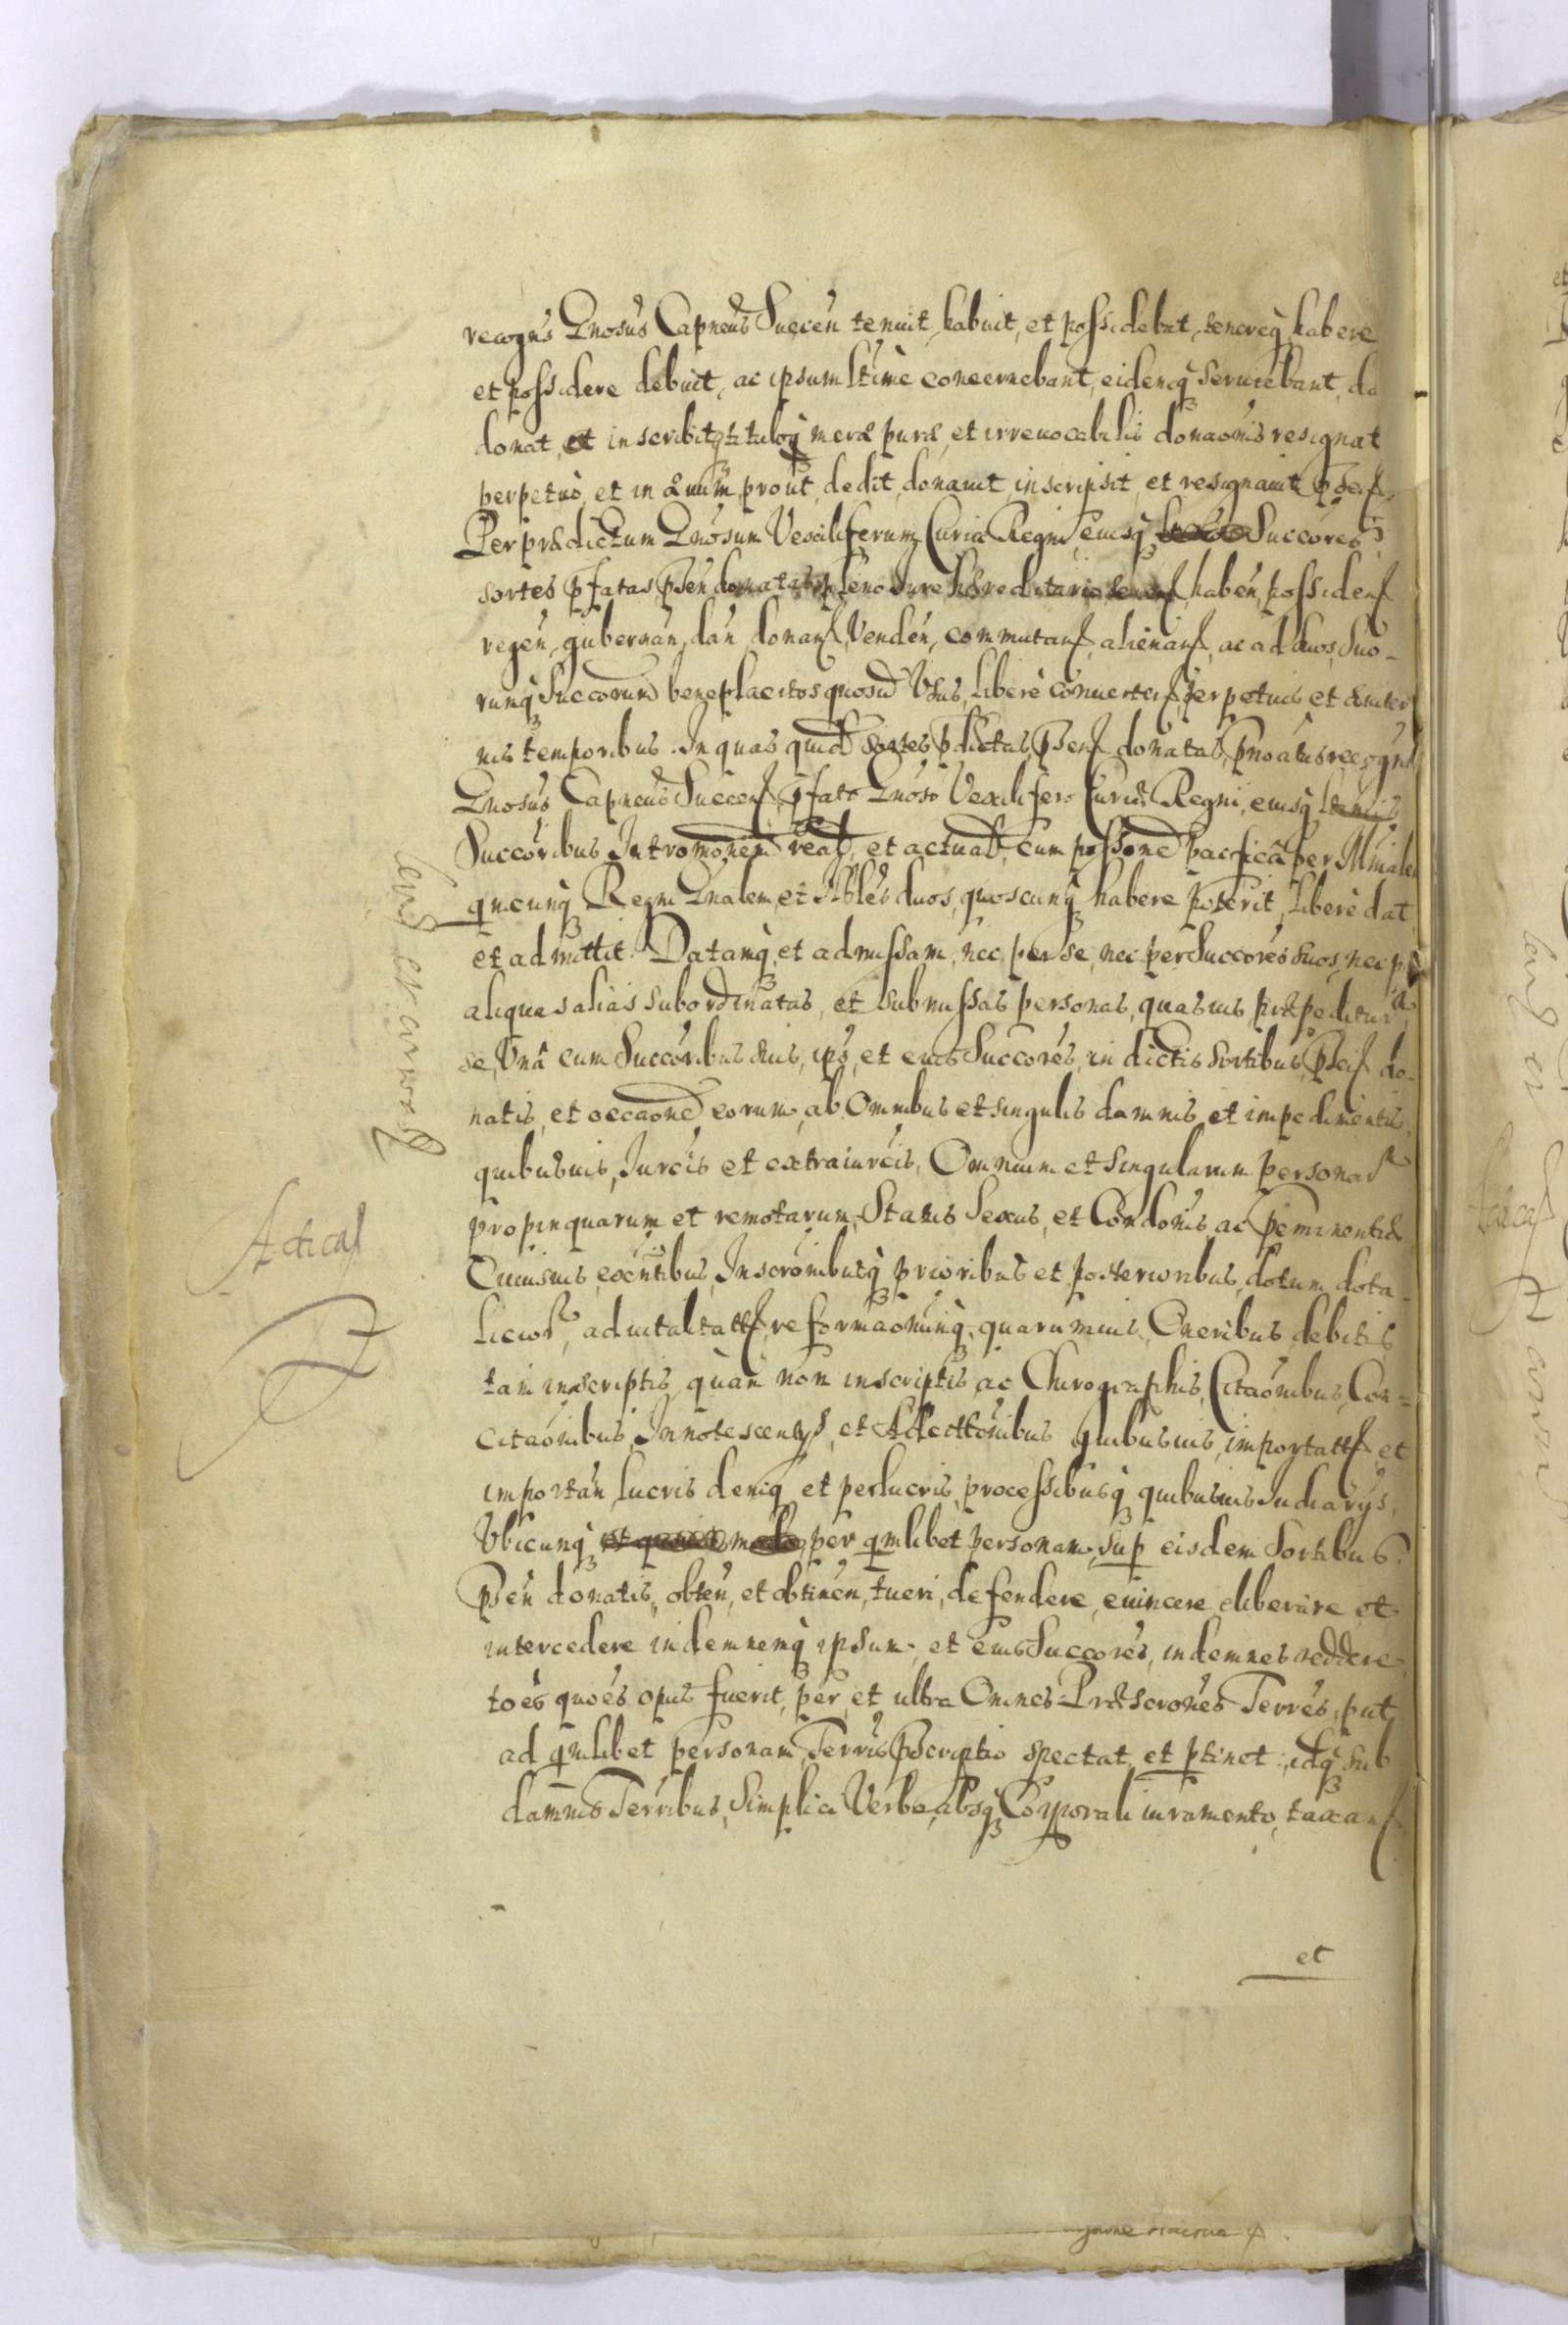 recogns Gnosus Capneus Succen tenuit, habuit, et possidebat, tenereq, habere
et possidere debuit, ac ipsum ltime concernebant, eidemq servicebant, da
donat, et inscribit, tituloq merae purae, et irrevocabilis donaonis resignat
perpetuo, et in aevum, prout, dedit, donavit, inscripsit, et resignavit
Per praedictum Gnosum Vexiliferum Curiae Regni, eiusq Succores
sortes pfatas psen donatas pleno iure haereditario haben, possiden
regen, gubernan, dan, donan, Venden, commutan, alienan, ac ad suos, suo-
rumq Succorum beneplacitos quosvis Usus, libere converten, perpetuis et aeviter
nis temporibus. In quas quid sortes pdictas, psen donatas, pnoatus recogns
Gnosus Capneus Succen, pfato Gnoso Vexilifero Curiae Regni, eiusq
Succoribus Intromonem realem, et actualem, cum possone pacifica per Mniale
quecunq Regni Gnalem, et Nobles duos, quoscunq habere poterit, libere dat
et admittit. Datamq, et admissam, nec per se, nec per Succores suos, nec p
aliquas alias subordinatas, et submissas personas, quasvis praepeditur
se, Una cum Succoribus suis, ips, et eius Succores, in dictis sortibus, psen do-
natis, et occaone eorum, ab Omnibus et singulis damnis et impedimentis,
quibusvis, Jurcis et extraiurcis, Omnium et Singularum personar
propinquarum et remotarum, Status Sexus, et Condonis ac peminentiae
Cuiusvis, exentibus, Inscronibusq prioribus et posterioribus, dotum, dota-
licior, advitalitatt, reformaonumq, quarumvis, Oneribus, debitis
tam inscriptis, quam non inscriptis, ac Chirographis, Citaonibus, Con-
citaonibus, Innotescentys, et Adcitonibus quibusvis, importatt, et
importan, lucris deniq et perlucris, processibusq quibusvis Judiarys,
Ubicunq per qmlibet personam, sup eisdem Sortibus
Psen donatis, obten, et obtinen, tueri, defendere, evincere eliberare et
intercedere indemnemq ipsum, et eius Succores, indemnes reddere
toes quoes opus fuerit, per, et ultra Omnes Praescrones Terres, put
ad qmlibet personam, Terris Pscriptio spectat, et ptinet, idq sub
damnis Terribus, Simplici Verbo, absq Corporali iuramento, taxan
et
Acticas